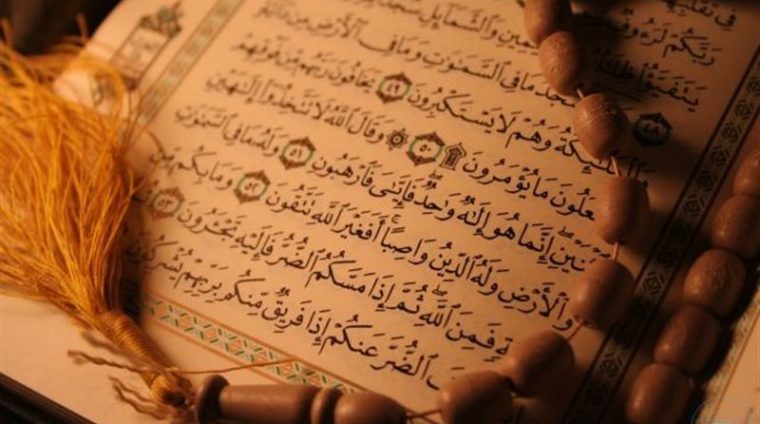 فِي تَقَلُّبِهِمْ
رَبَّكُمْ لَرَءُوفٌ
يَتَفَيَّؤُا۟ ظِلَٰلُهُ مِينِ وَٱلشَّمَآئِلِ سُجَّدًا
٤٨ سْجُدُ مَا فِى ٱلسَّمَٰوَٰتِ وَمَا فِى ٱلْأَرْضِ مِن دَآبَّةٍ
وَٱلْمَلَٰٓئِكَةُ وَهُمْ لَا يَسْتَكْبِرُونَ ٤٩ يَخَافُونَ رَبَّهُم مِّن فَوْقِهِمْ
عَلُونَ مَا يُؤْمَرُونَ ۩ ٥٠ ۞ وَقَالَ ٱللَّهُ لَا تَتَّخِذُوٓا۟ إِلَٰهَيْنِ
نَيْنِ إِنَّمَا هُوَ إِلَٰهٌ وَٰحِدٌ فَإِيَّٰىَ فَٱرْهَبُونِ ٥١ وَلَهُۥ مَا فِى ٱلسَّمَٰوَٰتِ
وَٱلْأَرْضِ وَلَهُ ٱلدِّينُ وَاصِبًا أَفَغَيْرَ ٱللَّهِ تَتَّقُونَ ٥٢ وَمَا بِكُم مِّن
ةٍ فَمِنَ ٱللَّهِ ثُمَّ إِذَا مَسَّكُمُ ٱلضُّرُّ فَإِلَيْهِ تَجْـَٔرُونَ ٥٣
فَ ٱلضُّرَّ عَنكُمْ إِذَا فَرِيقٌ مِّنكُم بِرَبِّهِمْ يُشْرِكُونَ